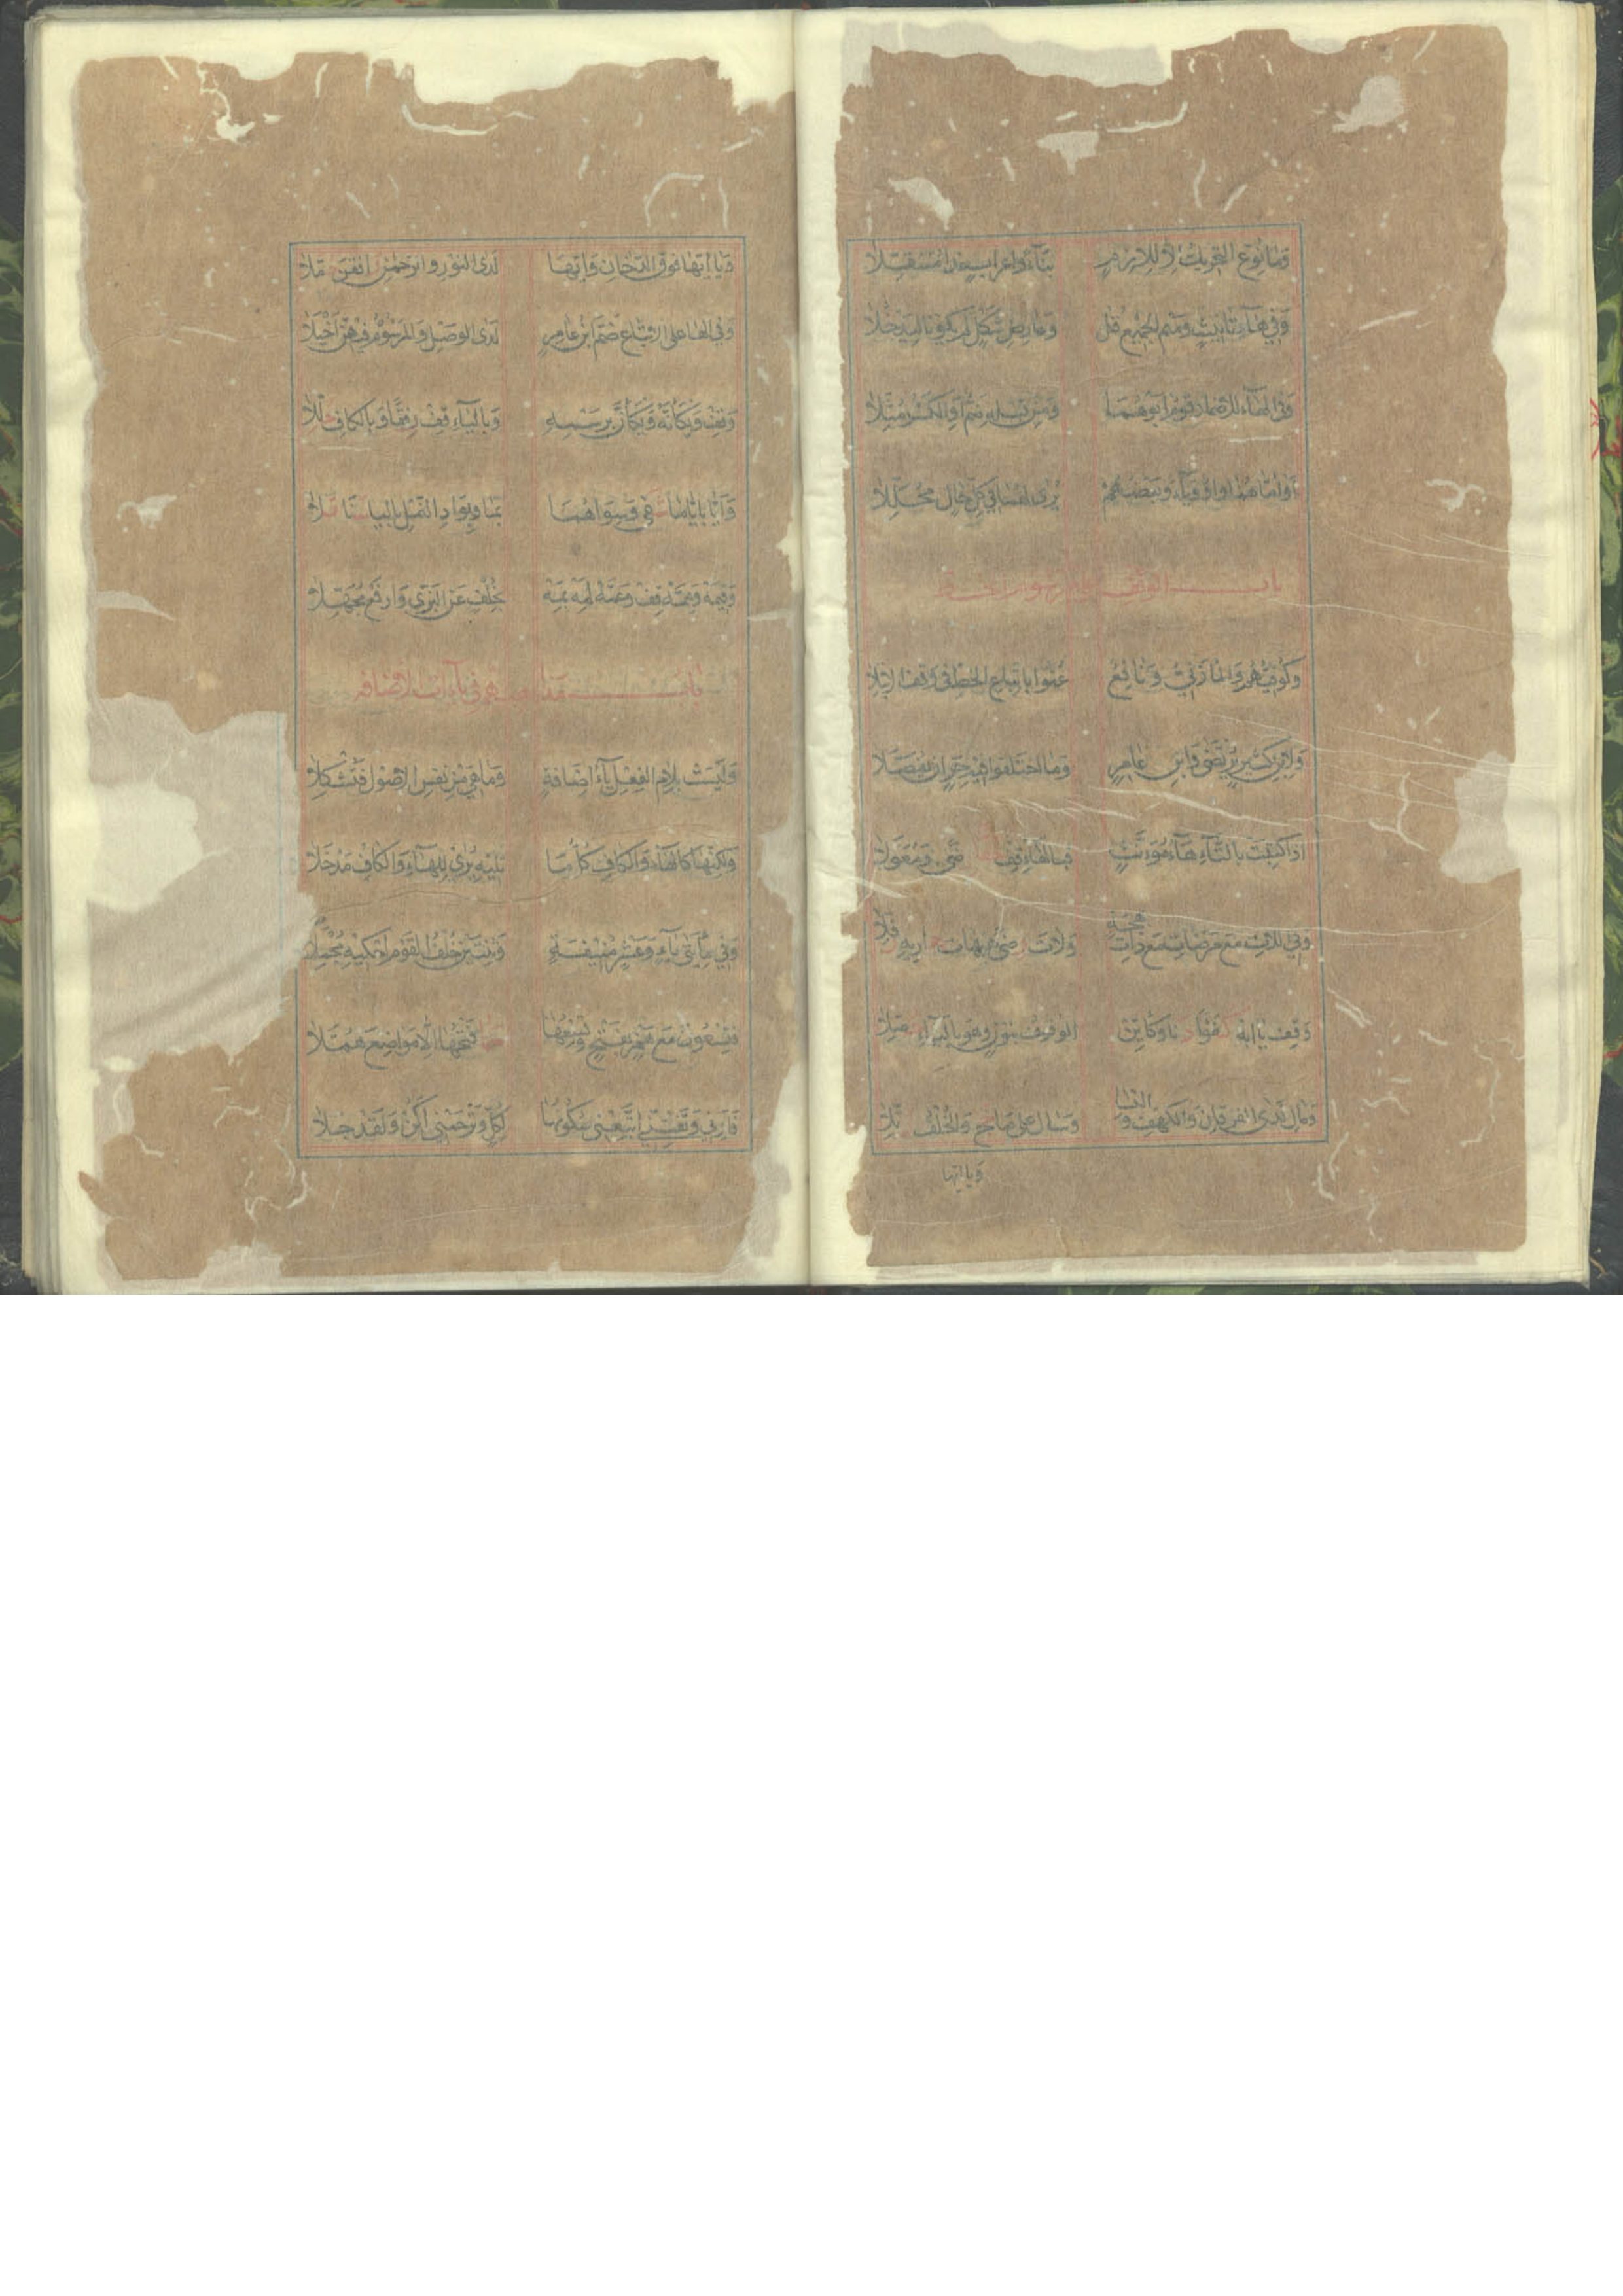 وَمَا نُوِّعَ التَّحْرِيكُ اِلَّا لِلَازِمٍ بِنَآءً وَاِعْرَابًا غَدَا مُتَنَقِّلَا
وَفِي هَآءِ تَانِيثٍ وَمِيمِ الْجَمِيعِ قُلْ وَعَارِضِ شَكْلٍ لَمْ يَكُونَا لِيَدْخُلَا
وَفِي الْهَآءِ لِلْاِضْمَارِ قَوْمٌ اَبَوْهُمَا وَمِنْ قَبْلِهِ ضَمٌّ اَوِ الْكَسْرُ مُثِّلَا
اَوُ امَّاهُمَا وَاوٌ وَيَآءٌ وَبَعْضُهُمْ يُرَى لَهُمَا فِي كُلِّ حَالٍ مُحَلِّلَا
بَابُ الوقف على مرسوم الخط
وَكُوفِيُّهُمْ وَالْمَازِنِيُّ وَنَافِعٌ عُنُوا بِاتِّبَاعِ الْخَطِّ فِي وَقْفِ الِابْتِلَا
وَلِابْنِ كَثِيرٍ يُرْتَضَى وَابْنِ عَامِرٍ وَمَا اخْتَلَفُوا فِيهِ حَرٍ اَنْ يُفَصَّلَا
اِذَا كُتِبَتْ بِالتَّآءِ هَآءُ مُؤَنَّثٍ فَبِالْهَآءِ قِفْ رِضًى وَمُعَوِّلَا
وَفِي اللَّاتَ مَعْ مَرْضَاتِ مَعْ ذَاتَ بَهْجَةٍ وَلَاتَ رِضًى هَيْهَاتَ رُفِّلَا
وَقِفْ يَا اَبَهْ كُفْؤًا دَنَا وَكَاَيِّنِ الْوُقُوفُ بِنُونٍ وَهْوَ بِالْيَآءِ حُصِّلَا
وَمَالِ لَدَى الْفُرْقَانِ وَالْكَهْفِ وَالنِّسَا وَسَالَ عَلَى مَا حَجَّ وَالْخُلْفُ رُتِّلَا
وَيَا اَيُّهَا
وَيَا اَيُّهَا فَوْقَ الدُّخَانِ وَاَيُّهَا لَدَى النُّورِ وَالرَّحْمٰنِ رَافَقْنَ حُمَّلَا
وَفِي الْهَا عَلَى الْاِتْبَاعِ ضَمَّ ابْنُ عَامِرٍ لَدَى الْوَصْلِ وَالْمَرْسُومُ فِيهِنَّ اَخْيَلَا
وَقِفْ وَيْكَاَنَّهُ وَيْكَاَنَّ بِرَسْمِهِ وَبِالْيَآءِ قِفْ رِفْقًا وَبِالْكَافِ حُلِّلَا
وَاَيًّا بِاَيًّا مَا شَفَى وَسِوَاهُمَا بِمَا وَبِوَادِ النَّمْلِ بِالْيَا سَنًا تَلَا
وَفِيمَهْ وَمِمَّهْ قِفْ وَعَمَّهْ لِمَهْ بِمَهْ بِخُلْفٍ عَنِ الْبَزِّي وَادْفَعْ مُجَهِّلَا
بَابُ مذاهبهم فى يآءات الاضافة
وَلَيْسَتْ بِلَامِ الْفِعْلِ يَآءُ اِضَافَةٍ وَمَا هِيَ مِنْ نَفْسِ الْاُصُولِ فَتُشْكِلَا
وَلٰكِنَّهَا كَالْهَآءِ وَالْكَافِ كُلُّ مَا تَلِيهِ يُرَى لِلْهَآءِ وَالْكَافِ مَدْخَلَا
وَفِي مِائَتَيْ يَآءٍ وَعَشْرٍ مُنِيفَةٍ وَثِنْتَيْنِ خُلْفُ الْقَوْمِ اَحْكِيهِ مُجْمَلَا
فَتِسْعُونَ مَعْ هَمْزٍ بِفَتْحٍ وَتِسْعُهَا سَمَا فَتْحُهَا اِلَّا مَوَاضِعَ هُمَّلَا
فَاَرْنِي وَتَفْتِنِّي اتَّبِعْنِي سُكُونُهَا لِكُلٍّ وَتَرْحَمْنِي اَكُنْ وَلَقَدْ جَلَا